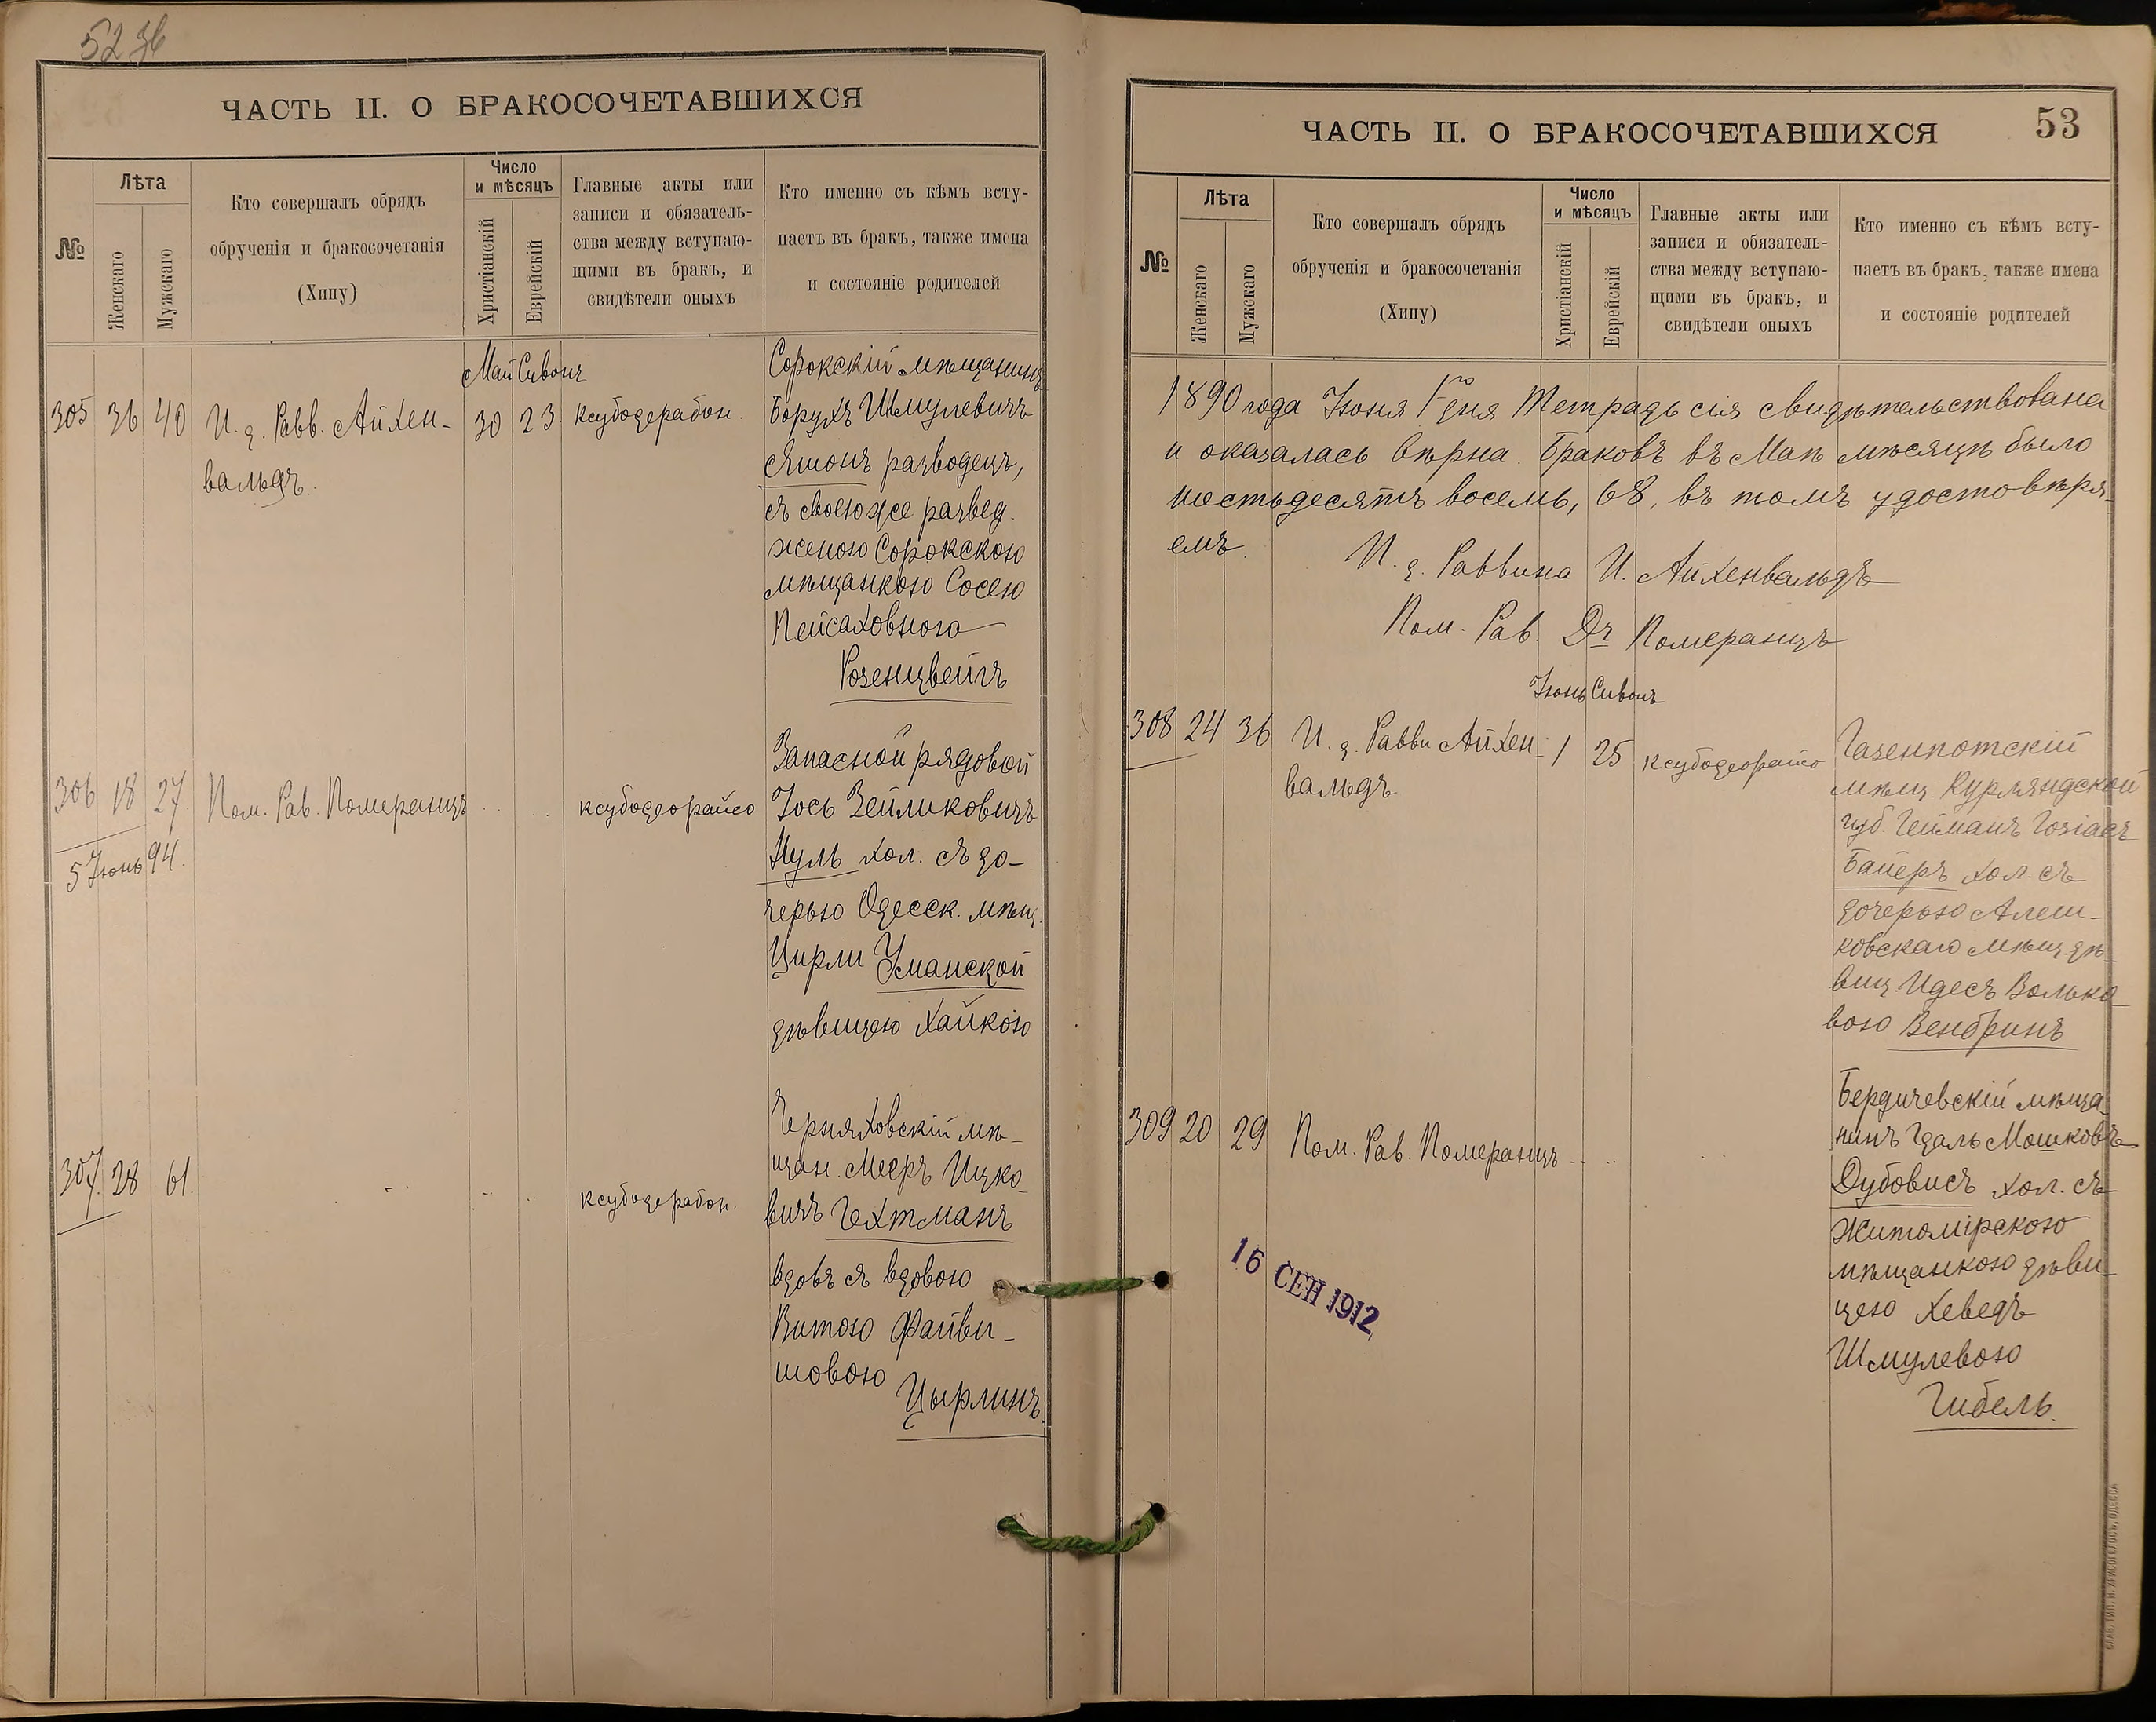 52 об
ЧАСТЬ II. О БРАКОСОЧЕТАВШИХСЯ
№
Лѣта
Женскаго
Мужскаго
Кто совершалъ обрядъ
обрученія и бракосочетанія
(Хипу)
Число
и мѣсяцъ
Христіанскій
Еврейскій
Главные акты или
записи и обязатель-
ства между вступаю-
щими въ бракъ, и
свидѣтели оныхъ
Кто именно съ кѣмъ всту-
паетъ въ бракъ, также имена
и состояніе родителей
Май Сивонъ
305 36 40 И. д. Равв. Айхен-
вальдъ.
30 23. ксубодерабон.
Сорокскій мѣщанинъ
Борухъ Шмулевичъ
Яшонъ разводецъ,
съ своею же развед.
женою Сорокскою
мѣщанкою Сосею
Пейсаховною
Розенцвейгъ
306 18 27 Пом. Рав. Померанцъ
5 Іюнь 94.
ксубодеорайсо
Запасной рядовой
Іось Зейликовичъ
Нуль хол. съ до-
черью Одесск. мѣщ.
Цирли Уманской
дѣвицею Хайкою
307. 28 61.
ксубодерабон.
Черняховскій мѣ-
щан. Мееръ Ицко-
вичъ Гехтманъ
вдовъ съ вдовою
Витою Файви-
шовою
Цырлинъ.
ЧАСТЬ II. О БРАКОСОЧЕТАВШИХСЯ
53
№
Лѣта
Женскаго
Мужскаго
Кто совершалъ обрядъ
обрученія и бракосочетанія
(Хипу)
Число
и мѣсяцъ
Христіанскій
Еврейскій
Главные акты или
записи и обязатель-
ства между вступаю-
щими въ бракъ, и
свидѣтели оныхъ
Кто именно съ кѣмъ всту-
паетъ въ бракъ, также имена
и состояніе родителей
1890 года Іюня 1го дня Тетрадь сія свидѣтельствована
и оказалась вѣрна. Браковъ въ Маѣ мѣсяцѣ было
шестьдесятъ восемь, 68, въ томъ удостовѣря-
емъ.
И. д. Раввина И. Айхенвальдъ
Пом. Рав. Dr Померанцъ
Іюнь Сивонъ
308 24 36 И. д. Равви Айхен-
вальдъ
1 25 ксубодеорайсо
Газенпотскій
мѣщ. Курляндской
губ. Гейманъ Іосіасъ
Байеръ хол. съ
дочерью Алеш-
ковскаго мѣщ. дѣ-
виц. Идесъ Волько-
вою Вендринъ
309 20 29 Пом. Рав. Померанцъ
Бердичевскій мѣща-
нинъ Гдаль Мошковъ
Дубовисъ хол. съ
Житомірскою
мѣщанкою дѣви-
цею Хеведъ
Шмулевою
Гибель.
16 СЕН 1912
СЛАВ. ТИП. Н. ХРИСОГЕЛОСЪ, ОДЕССА